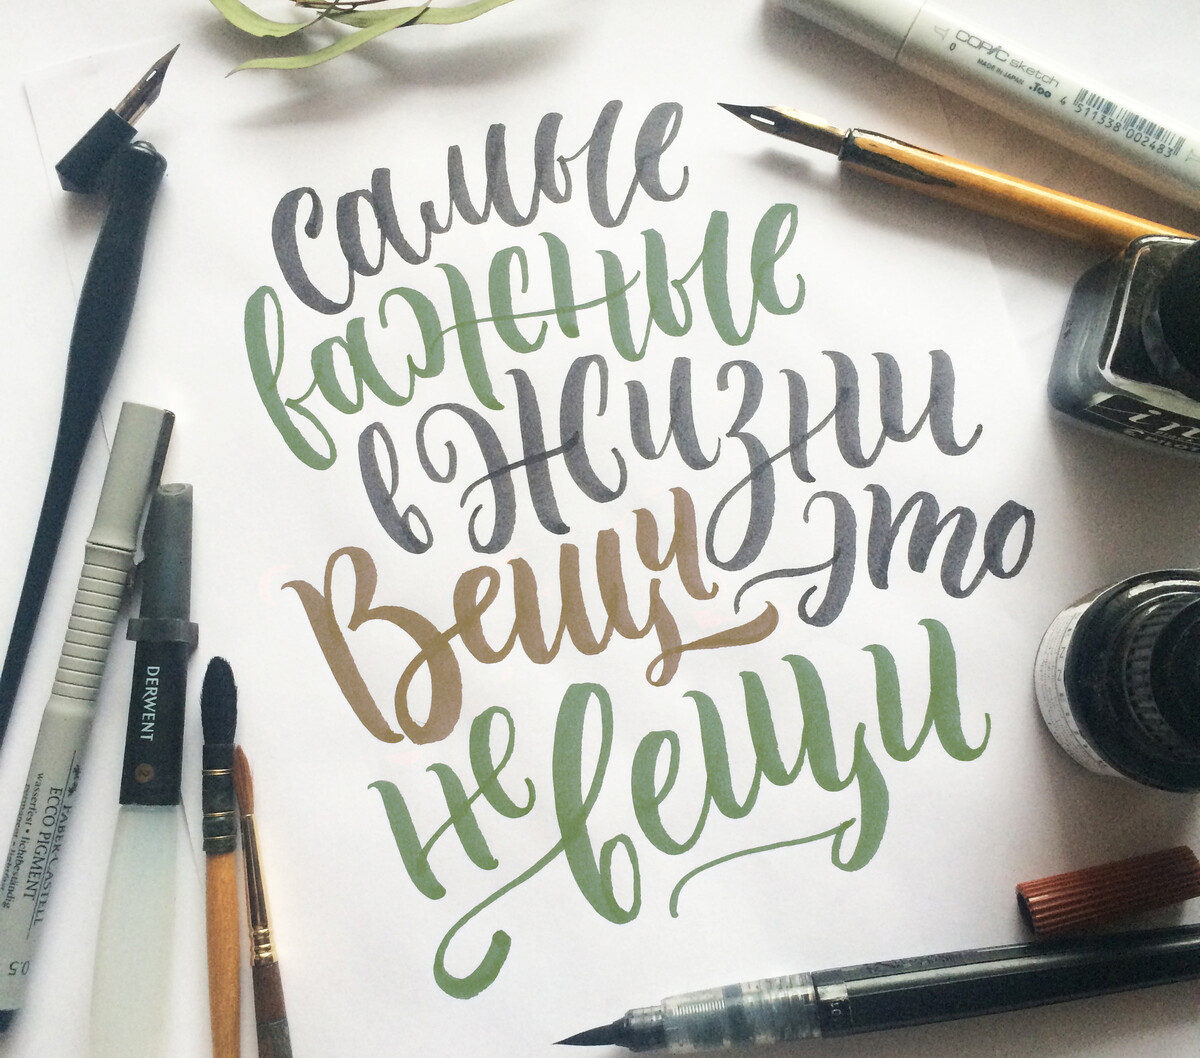 самые
важные
в жизни
Вещи это
не вещи
COPIC sketch
MADE IN JAPAN .Too
0
4 511338 002483
DERWENT
2
FABER-CASTELL
ECCO PIGMENT
wasserfest • lichtbeständig
0.5